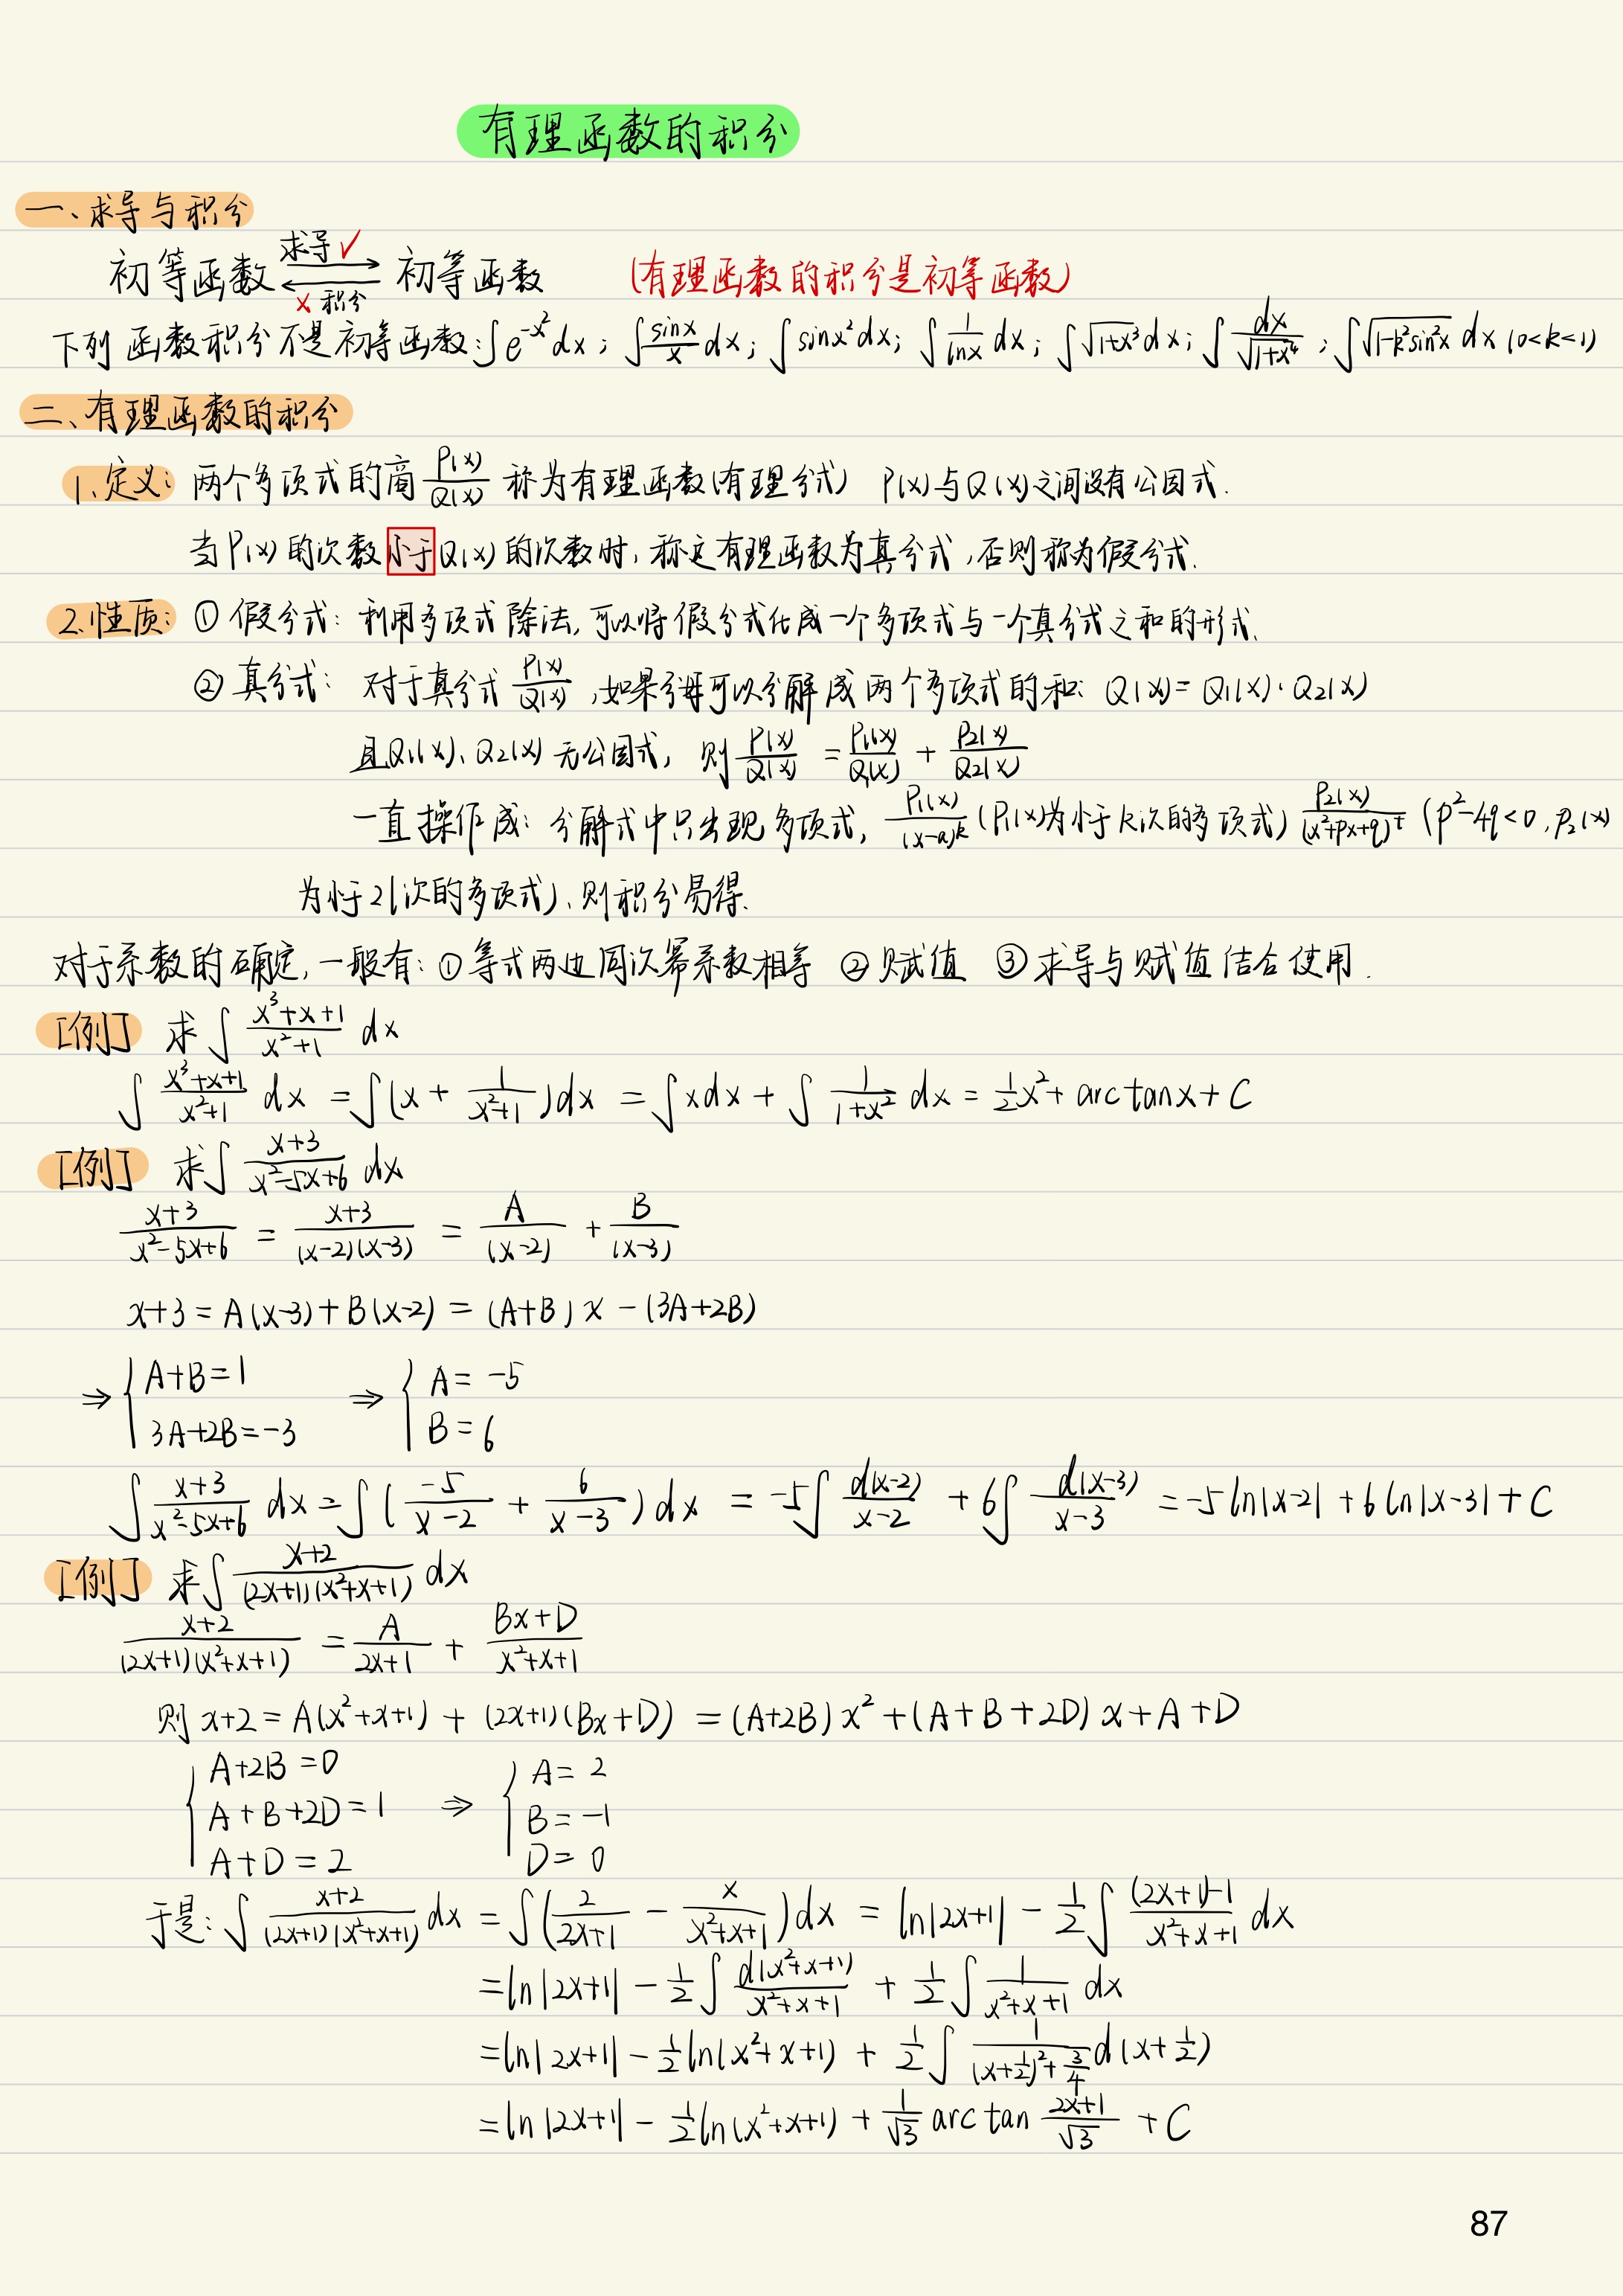 有理函数的积分
一、求导与积分
初等函数 ⇄ 初等函数 (求导 ✓ / × 积分) (有理函数的积分是初等函数)
下列函数积分不是初等函数: ∫e^{-x²}dx; ∫\frac{sinx}{x}dx; ∫sinx²dx; ∫\frac{1}{lnx}dx; ∫\sqrt{1+x³}dx; ∫\frac{dx}{\sqrt{1+x⁴}}; ∫\sqrt{1-k²sin²x} dx (0<k<1)
二、有理函数的积分
1、定义: 两个多项式的商\frac{P(x)}{Q(x)}称为有理函数(有理分式) P(x)与Q(x)之间没有公因式.
当P(x)的次数小于Q(x)的次数时,称这有理函数为真分式,否则称为假分式.
2.性质: ① 假分式: 利用多项式除法,可以将假分式化成一个多项式与一个真分式之和的形式.
② 真分式: 对于真分式\frac{P(x)}{Q(x)},如果分母可以分解成两个多项式的和: Q(x)=Q₁(x)·Q₂(x)
且Q₁(x)、Q₂(x)无公因式, 则\frac{P(x)}{Q(x)}=\frac{P₁(x)}{Q₁(x)}+\frac{P₂(x)}{Q₂(x)}
一直操作成: 分解式中只出现多项式, \frac{P₁(x)}{(x-a)^k}(P₁(x)为小于k次的多项式) \frac{P₂(x)}{(x²+px+q)^l} (p²-4q<0, P₂(x)
为小于2l次的多项式)、则积分易得.
对于系数的确定,一般有: ①等式两边同次幂系数相等 ②赋值 ③求导与赋值结合使用.
[例] 求∫\frac{x³+x+1}{x²+1}dx
∫\frac{x³+x+1}{x²+1}dx = ∫(x+\frac{1}{x²+1})dx = ∫xdx + ∫\frac{1}{1+x²}dx = \frac{1}{2}x²+arctanx+C
[例] 求∫\frac{x+3}{x²-5x+6}dx
\frac{x+3}{x²-5x+6} = \frac{x+3}{(x-2)(x-3)} = \frac{A}{(x-2)} + \frac{B}{(x-3)}
x+3=A(x-3)+B(x-2)=(A+B)x-(3A+2B)
⇒ { A+B=1 ⇒ { A=-5
3A+2B=-3 B=6
∫\frac{x+3}{x²-5x+6}dx = ∫(\frac{-5}{x-2}+\frac{6}{x-3})dx = -5∫\frac{d(x-2)}{x-2}+6∫\frac{d(x-3)}{x-3} = -5ln|x-2|+6ln|x-3|+C
[例] 求∫\frac{x+2}{(2x+1)(x²+x+1)}dx
\frac{x+2}{(2x+1)(x²+x+1)} = \frac{A}{2x+1} + \frac{Bx+D}{x²+x+1}
则 x+2=A(x²+x+1)+(2x+1)(Bx+D)=(A+2B)x²+(A+B+2D)x+A+D
{ A+2B=0 { A=2
A+B+2D=1 ⇒ B=-1
A+D=2 D=0
于是: ∫\frac{x+2}{(2x+1)(x²+x+1)}dx = ∫(\frac{2}{2x+1}-\frac{x}{x²+x+1})dx = ln|2x+1|-\frac{1}{2}∫\frac{(2x+1)-1}{x²+x+1}dx
=ln|2x+1|-\frac{1}{2}∫\frac{d(x²+x+1)}{x²+x+1}+\frac{1}{2}∫\frac{1}{x²+x+1}dx
=ln|2x+1|-\frac{1}{2}ln(x²+x+1)+\frac{1}{2}∫\frac{1}{(x+\frac{1}{2})²+\frac{3}{4}}d(x+\frac{1}{2})
=ln|2x+1|-\frac{1}{2}ln(x²+x+1)+\frac{1}{\sqrt{3}}arctan\frac{2x+1}{\sqrt{3}}+C
87